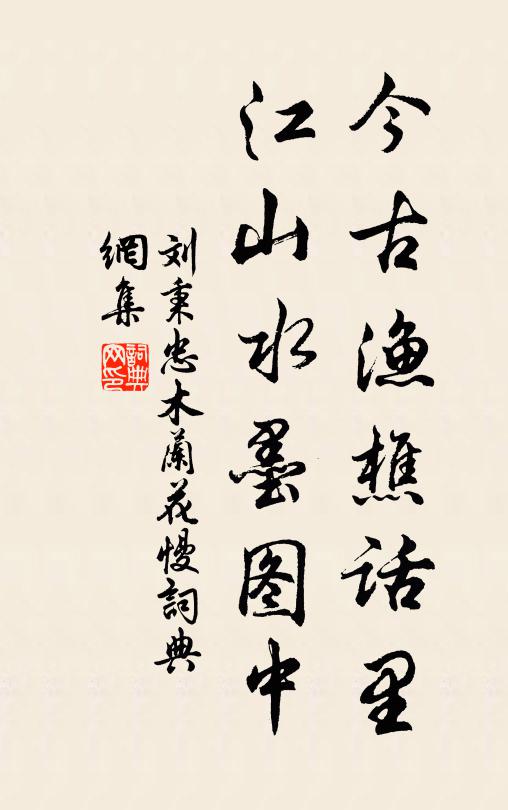 今古渔樵话里
江山水墨图中
刘秉忠木蘭花慢詞典
網集
詞典
网印